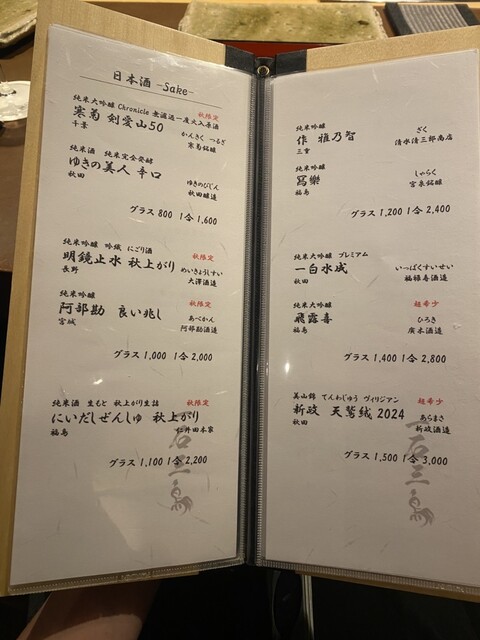 日本酒 -Sake-
純米大吟醸 Chronicle 無濾過一度火入原酒 秋限定
寒菊 剣愛山50 かんきく つるぎ
千葉 寒菊銘醸
純米酒 純米完全発酵
ゆきの美人 辛口 ゆきのびじん
秋田 秋田醸造
グラス 800 1合 1,600
純米吟醸 吟織 にごり酒 秋限定
明鏡止水 秋上がり めいきょうしすい
長野 大澤酒造
純米吟醸 秋限定
阿部勘 良い兆し あべかん
宮城 阿部勘酒造
グラス 1,000 1合 2,000
純米酒 生もと 秋上がり生詰 秋限定
にいだしぜんしゅ 秋上がり
福島 仁井田本家
グラス 1,100 1合 2,200
石三鳥
純米吟醸 ざく
作 雅乃智 清水清三郎商店
三重
純米吟醸 しゃらく
冩樂 宮泉銘醸
福島
グラス 1,200 1合 2,400
純米大吟醸 プレミアム
一白水成 いっぱくすいせい
秋田 福禄寿酒造
純米大吟醸 超希少
飛露喜 ひろき
福島 廣木酒造
グラス 1,400 1合 2,800
美山錦 てんわじゅう ヴィリジアン 超希少
新政 天鵞絨 2024 あらまさ
秋田 新政酒造
グラス 1,500 1合 3,000
一石三鳥